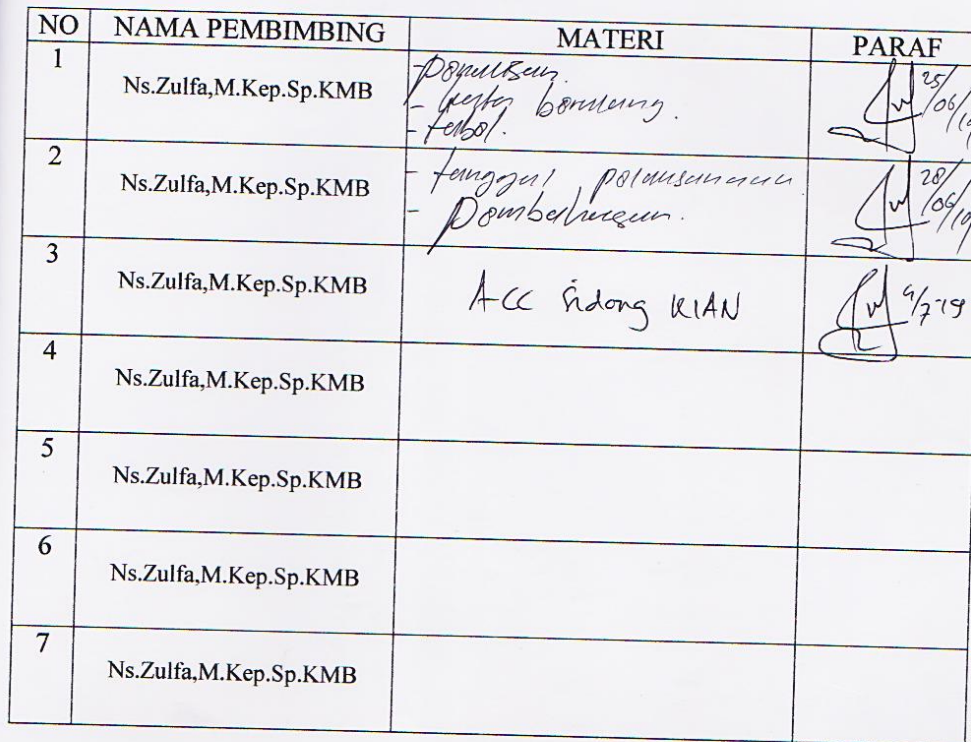 NO NAMA PEMBIMBING MATERI PARAF
1 Ns.Zulfa,M.Kep.Sp.KMB
- penulisan
- 
- tabel.
25/06/19
2 Ns.Zulfa,M.Kep.Sp.KMB
- tanggal pelaksanaan
- Pembahasan.
28/06/19
3 Ns.Zulfa,M.Kep.Sp.KMB
ACC Sidang KIAN
4/7-19
4 Ns.Zulfa,M.Kep.Sp.KMB
5 Ns.Zulfa,M.Kep.Sp.KMB
6 Ns.Zulfa,M.Kep.Sp.KMB
7 Ns.Zulfa,M.Kep.Sp.KMB